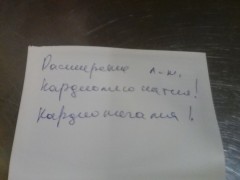 Расширение л-м.
Кардиомиопатия!
Кардиомегалия!